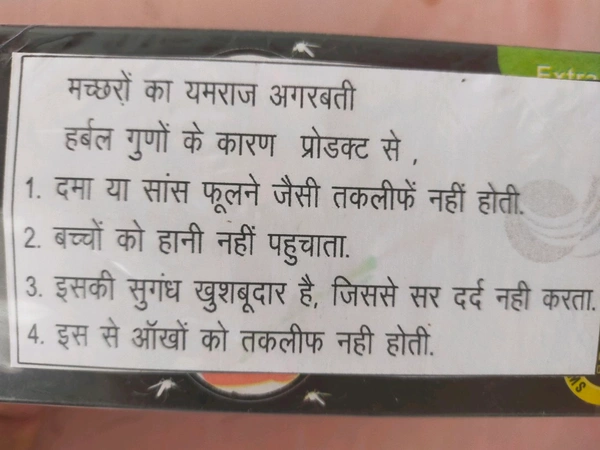 Extra
मच्छरों का यमराज अगरबती
हर्बल गुणों के कारण प्रोडक्ट से ,
1. दमा या सांस फूलने जैसी तकलीफें नहीं होती.
2. बच्चों को हानी नहीं पहुचाता.
3. इसकी सुगंध खुशबूदार है, जिससे सर दर्द नही करता.
4. इस से ऑखों को तकलीफ नही होती.